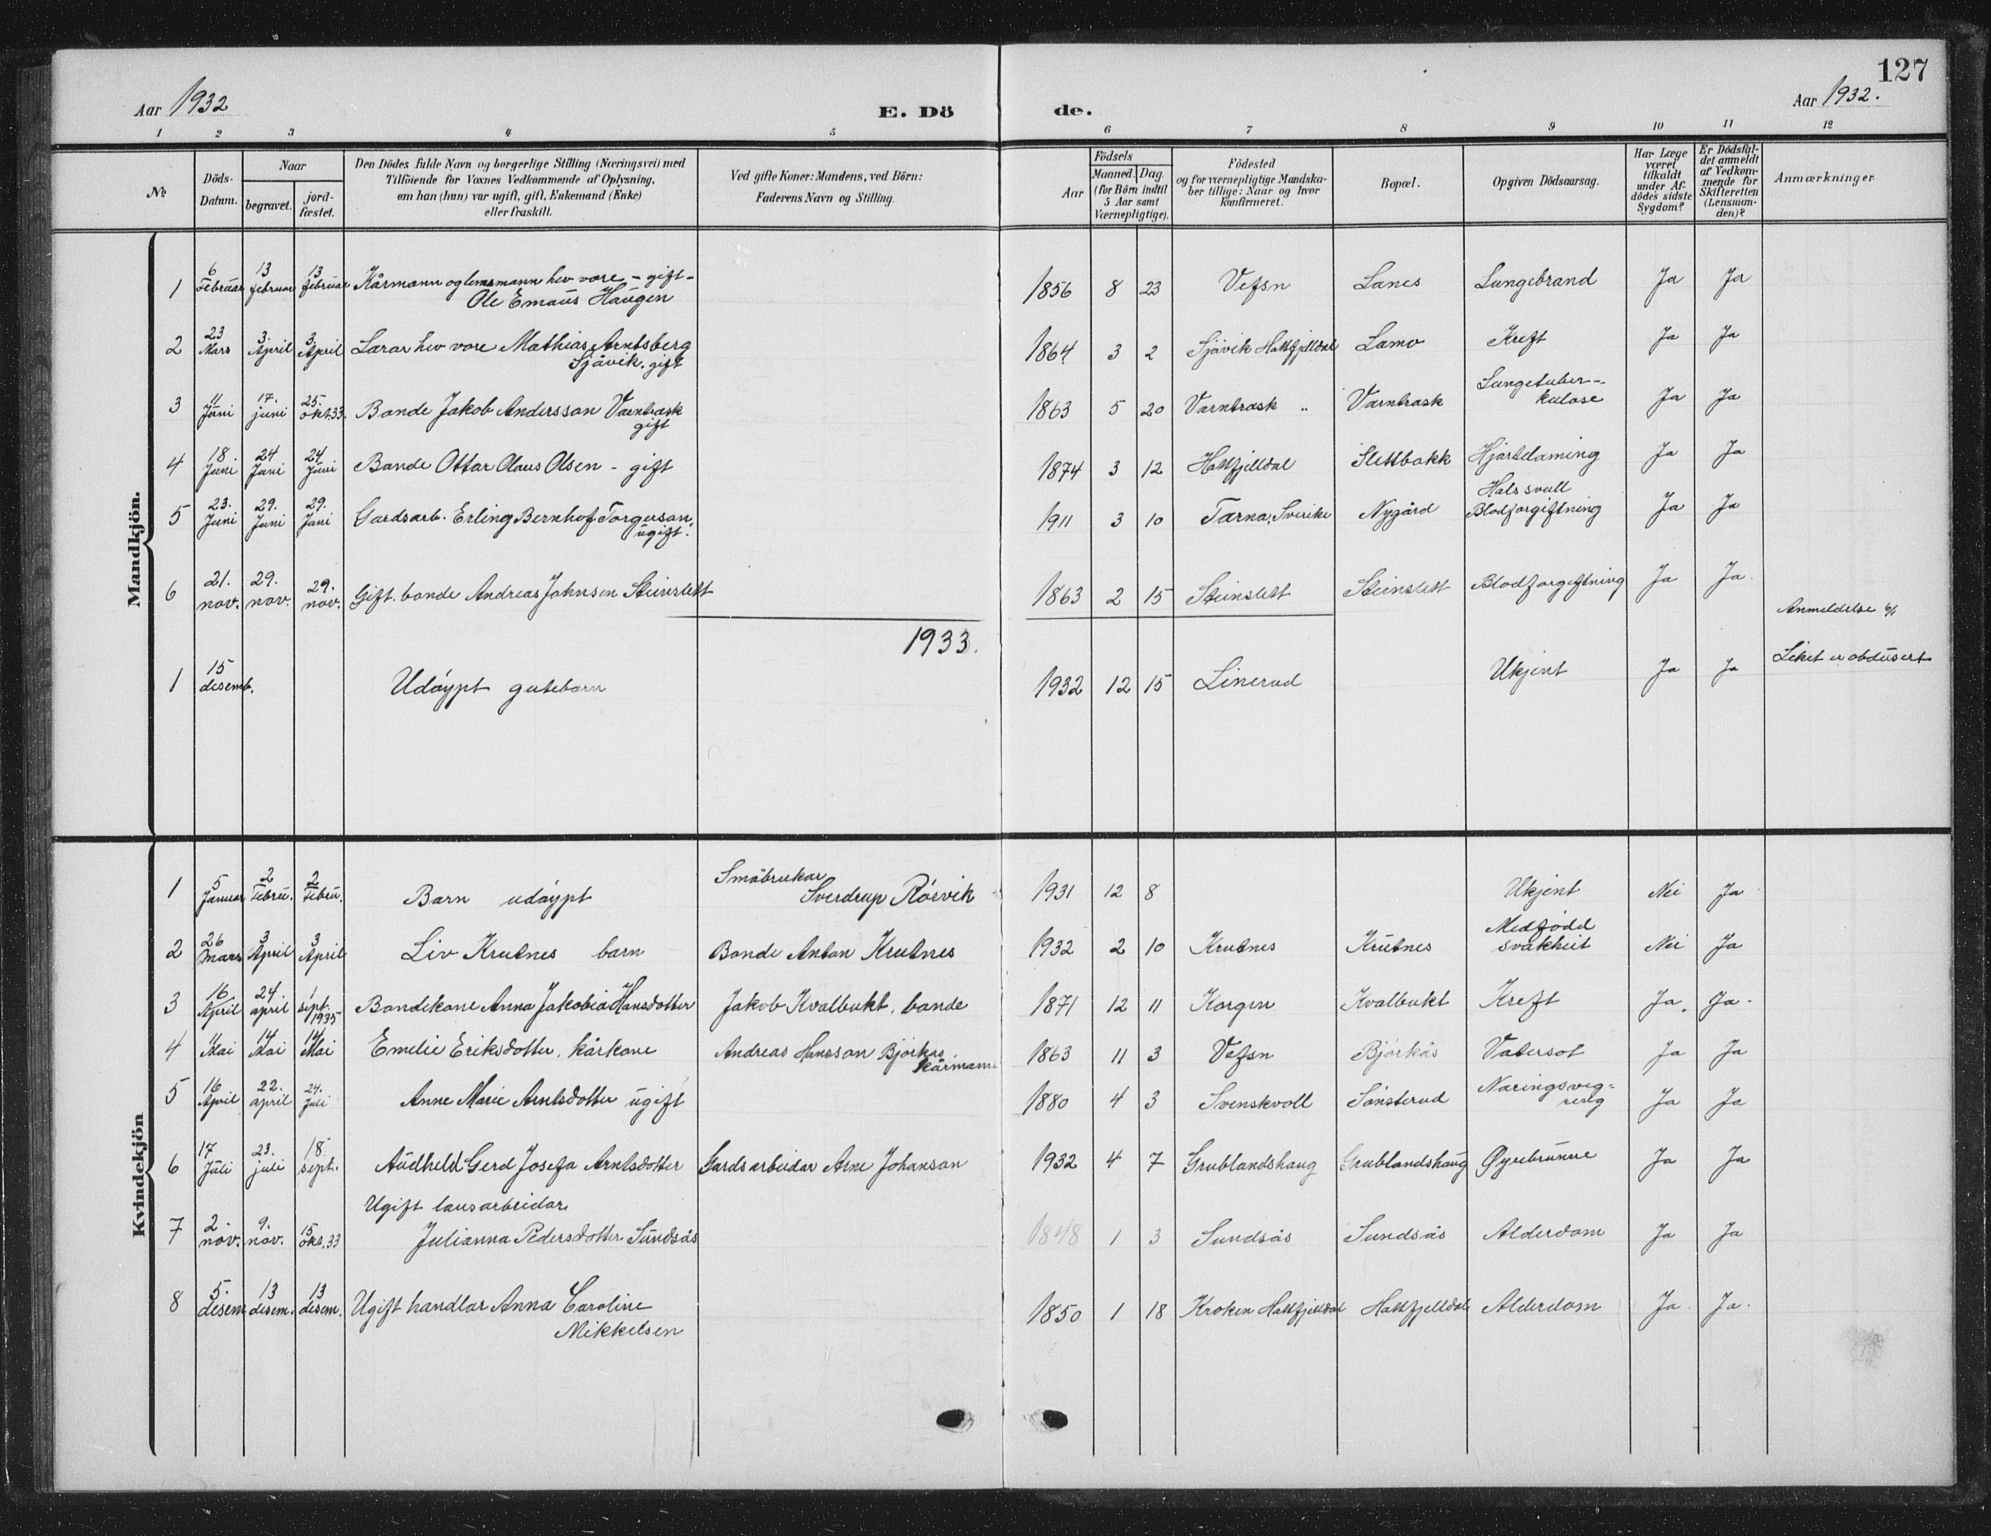 127
Aar 1932
E. Dö
de.
Aar 1932.
1 2 3 4 5 6 7 8 9 10 11 12
No
Döds-
Datum.
Naar
begravet.
jord-
fæstet.
Den Dödes fulde Navn og borgerlige Stilling (Næringsvei) med
Tilföiende for Voxnes Vedkommende af Oplysning,
om han (hun) var ugift, gift, Enkemand (Enke)
eller fraskilt.
Ved gifte Koner: Mandens, ved Börn:
Faderens Navn og Stilling.
Födsels
Aar
Maaned. Dag.
(for Börn indtil
5 Aar samt
Værnepligtige).
Födested
og for værnepligtige Mandska-
ber tillige: Naar og hvor
konfirmeret.
Bopæl.
Opgiven Dödsaarsag.
Har Læge
været
tilkaldt
under Af-
dödes sidste
Sygdom?
Er Dödsfal-
det anmeldt
af Vedkom-
mende for
Skifteretten
(Lensman-
den)?
Anmærkninger
Mandkjön.
1 6 Februar 13 februar 13 februar Kårmann og lensmann hev vore - gift -
Ole Emaus Haugen 1856 8 23 Vefsn Lanes Lungebrand Ja Ja
2 23 Mars 3. April 3. April Lærar hev vore Mathias Arntsberg
Sjåvik. gift 1864 3 2 Sjåvik Hattfjelldal Lamo Kreft Ja Ja
3 11 Juni 17. juni 25. okt. 33. Bonde Jakob Andersson Varntræsk
gift 1863 5 20 Varntræsk " Varntræsk Lungetuber-
kulose Ja Ja
4 18 Juni 24 Juni 24 Juni Bonde Ottar Olaus Olsen - gift 1874 3 12 Hattfjelldal Slettbakk Hjartelaming Ja Ja
5 23. Juni 29. Juni 29. Juni Gardsarb. Erling Bernhof Torguson,
ugift. 1911 3 10 Tærna, Sverike Nygård Halssvull
Blodforgiftning Ja Ja
6 21. nov. 29. nov. 29. nov. Gift. bonde Andreas Johnsen Steinslett 1863 2 15 Steinslett Steinslett Blodforgiftning Ja Ja.
1933.
Anmeldelse 6/1
1 15 desemb. Udøypt gutebarn 1932 12 15 Linerud Ukjent Ja Ja Liket er obdusert
Kvindekjön
1 5 Januar 2 Febru. 2 Febru. Barn udøypt Småbrukar
Sverdrup Rörvik 1931 12 8 Ukjent Nei Ja
2 26 Mars 3 April 3 April Liv Krutnes barn Bonde Anton Krutnes 1932 2 10 Krutnes Krutnes Medfødd
svakheit Nei Ja
3 16 April 24 april sept. 1935 Bondekone Anna Jakobia Hansdotter Jakob Kvalbukt, bonde 1871 12 11 Korgen Kvalbukt Kreft Ja. Ja.
4 Mai 14 Mai 14 Mai Emelie Eriksdotter, kårkone Andreas Hansson Bjørkås
kårmann 1863 11 3 Vefsn Bjørkås Vatersot Ja Ja
5 16 April 22. april 24. Juli Anne Marie Arntsdotter ugift 1880 4 3 Svenskvoll Sønsterud Næringsveg-
ring Ja Ja
6 17 Juli 23. juli 18. sept. Audheld Gerd Josefa Arntsdotter Gardsarbeidar Arne Johanson 1932 4 7 Grublandshaug Grublandshaug Øyrebrunne Ja Ja
7 2. nov. 9. nov. 15 okt. 33 Ugift lausarbeidar
Julianna Pedersdotter Sundsås 1848 1 3 Sundsås Sundsås Alderdom Ja Ja
8 5. desem 13 desem. 13 desem. Ugift handlar Anna Caroline
Mikkelsen 1850 1 18 Kroken Hattfjelldal Hattfjelldal Alderdom Ja Ja.